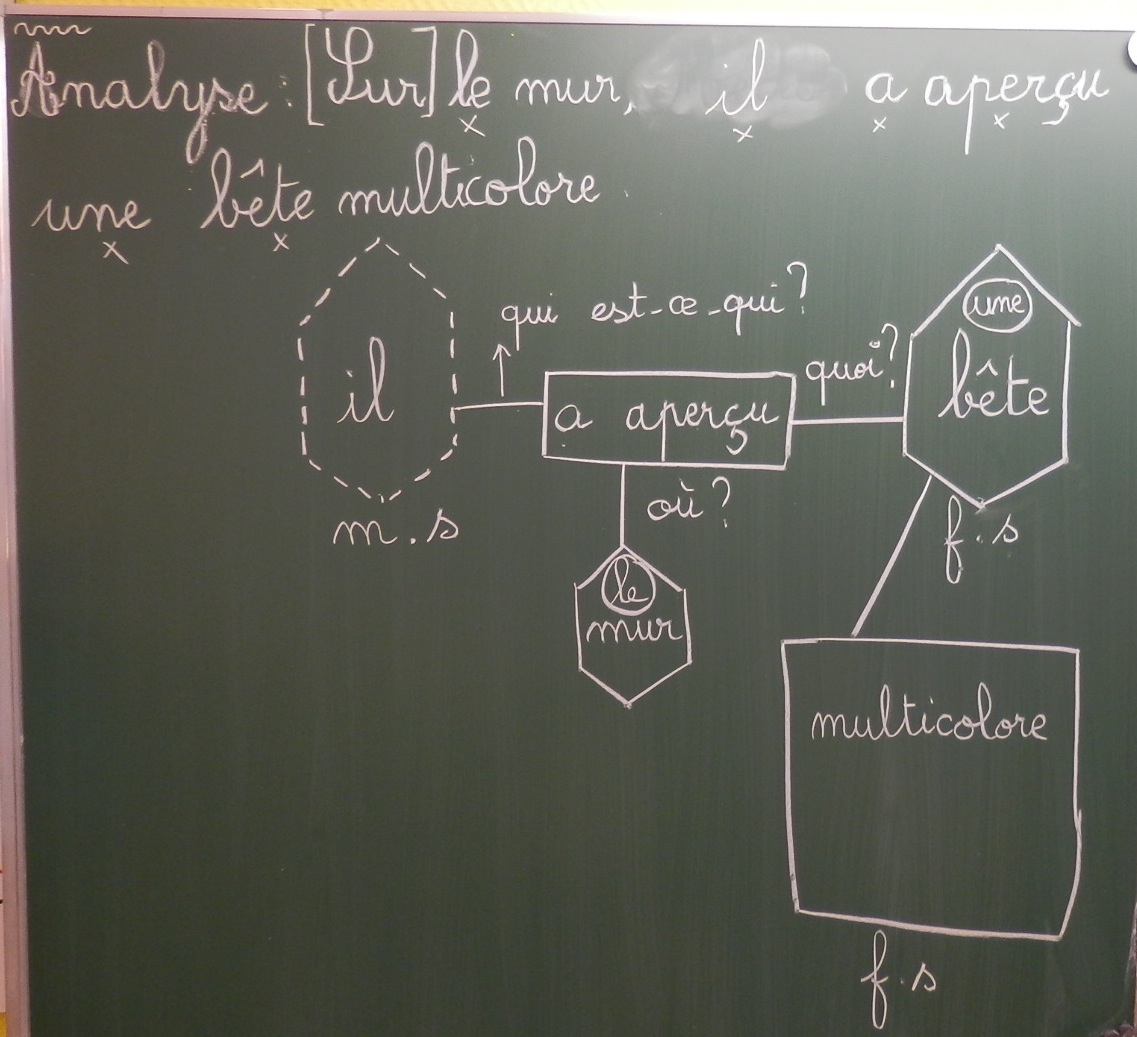 Analyse : [Sur] le mur, il a aperçu
x x x x
une bête multicolore.
x x
qui est-ce-qui ?
une
quoi ?
il
a aperçu
bête
où ?
m . s
f . s
le
mur
multicolore
f . s